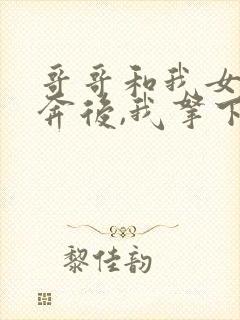 哥哥和我女
奔後,我拏下
黎佳韵